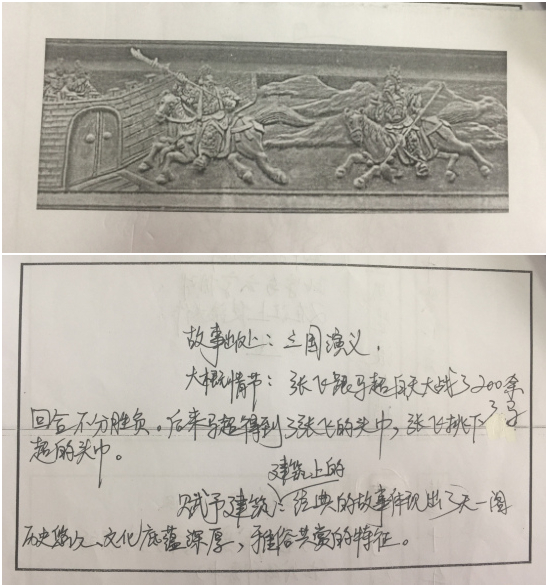 故事出处：三国演义.
大概情节：张飞跟马超白天大战了200余
回合不分胜负。后来马超得到了张飞的头巾，张飞挑下了马
超的头巾。
建筑上的
赋予建筑：经典的故事体现出了天一阁
历史悠久、文化底蕴深厚，雅俗共赏的特征。